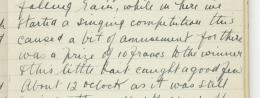 falling rain, while in here we
started a singing competition this
caused a bit of amusement for there
was a prize of 10 francs to the winner
& this little part caught a good few
About 12 o'clock as it was still